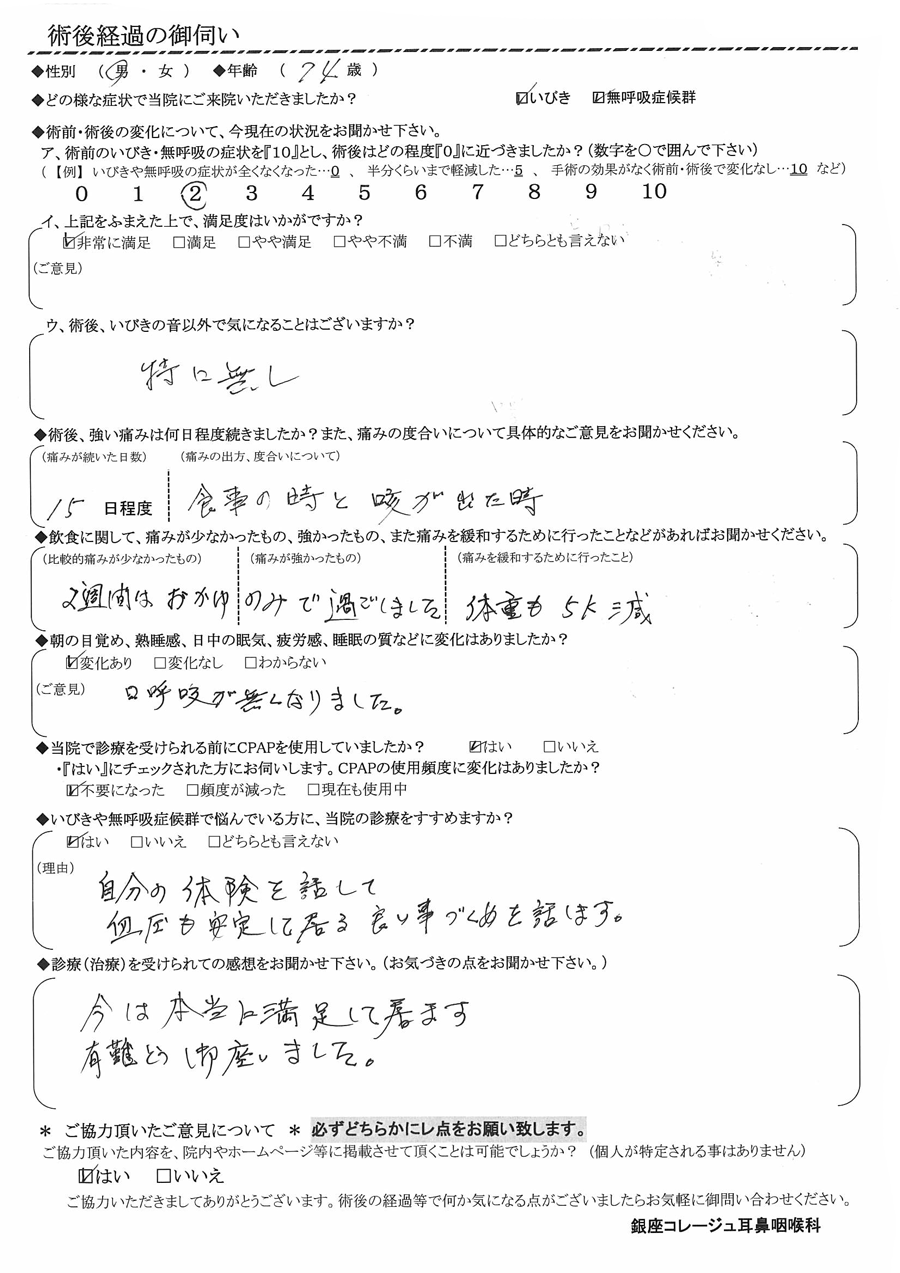 術後経過の御伺い
◆性別 （ 男 ・ 女 ） ◆年齢 （ 74 歳 ）
◆どの様な症状で当院にご来院いただきましたか？ ☑いびき ☑無呼吸症候群
◆術前・術後の変化について、今現在の状況をお聞かせ下さい。
ア、術前のいびき・無呼吸の症状を『10』とし、術後はどの程度『0』に近づきましたか？（数字を〇で囲んで下さい）
（【例】 いびきや無呼吸の症状が全くなくなった…0 、 半分くらいまで軽減した…5 、 手術の効果がなく術前・術後で変化なし…10 など）
0 1 2 3 4 5 6 7 8 9 10
イ、上記をふまえた上で、満足度はいかがですか？
☑非常に満足 □満足 □やや満足 □やや不満 □不満 □どちらとも言えない
（ご意見）
ウ、術後、いびきの音以外で気になることはございますか？
特に無し
◆術後、強い痛みは何日程度続きましたか？また、痛みの度合いについて具体的なご意見をお聞かせください。
（痛みが続いた日数） （痛みの出方、度合いについて）
15 日程度 食事の時と咳が出た時
◆飲食に関して、痛みが少なかったもの、強かったもの、また痛みを緩和するために行ったことなどがあればお聞かせください。
（比較的痛みが少なかったもの） （痛みが強かったもの） （痛みを緩和するために行ったこと）
2週間はおかゆのみで過ごしました 体重も5K減
◆朝の目覚め、熟睡感、日中の眠気、疲労感、睡眠の質などに変化はありましたか？
☑変化あり □変化なし □わからない
（ご意見） 口呼吸が無くなりました。
◆当院で診療を受けられる前にCPAPを使用していましたか？ ☑はい □いいえ
・『はい』にチェックされた方にお伺いします。CPAPの使用頻度に変化はありましたか？
☑不要になった □頻度が減った □現在も使用中
◆いびきや無呼吸症候群で悩んでいる方に、当院の診療をすすめますか？
☑はい □いいえ □どちらとも言えない
（理由）
自分の体険を話して
血圧も安定して居る良い事づくめを話ます。
◆診療（治療）を受けられての感想をお聞かせ下さい。（お気づきの点をお聞かせ下さい。）
今は本当に満足して居ます
有難とう御座いました。
＊ ご協力頂いたご意見について ＊ 必ずどちらかにレ点をお願い致します。
ご協力頂いた内容を、院内やホームページ等に掲載させて頂くことは可能でしょうか？ （個人が特定される事はありません）
☑はい □いいえ
ご協力いただきましてありがとうございます。術後の経過等で何か気になる点がございましたらお気軽に御問い合わせください。
銀座コレージュ耳鼻咽喉科